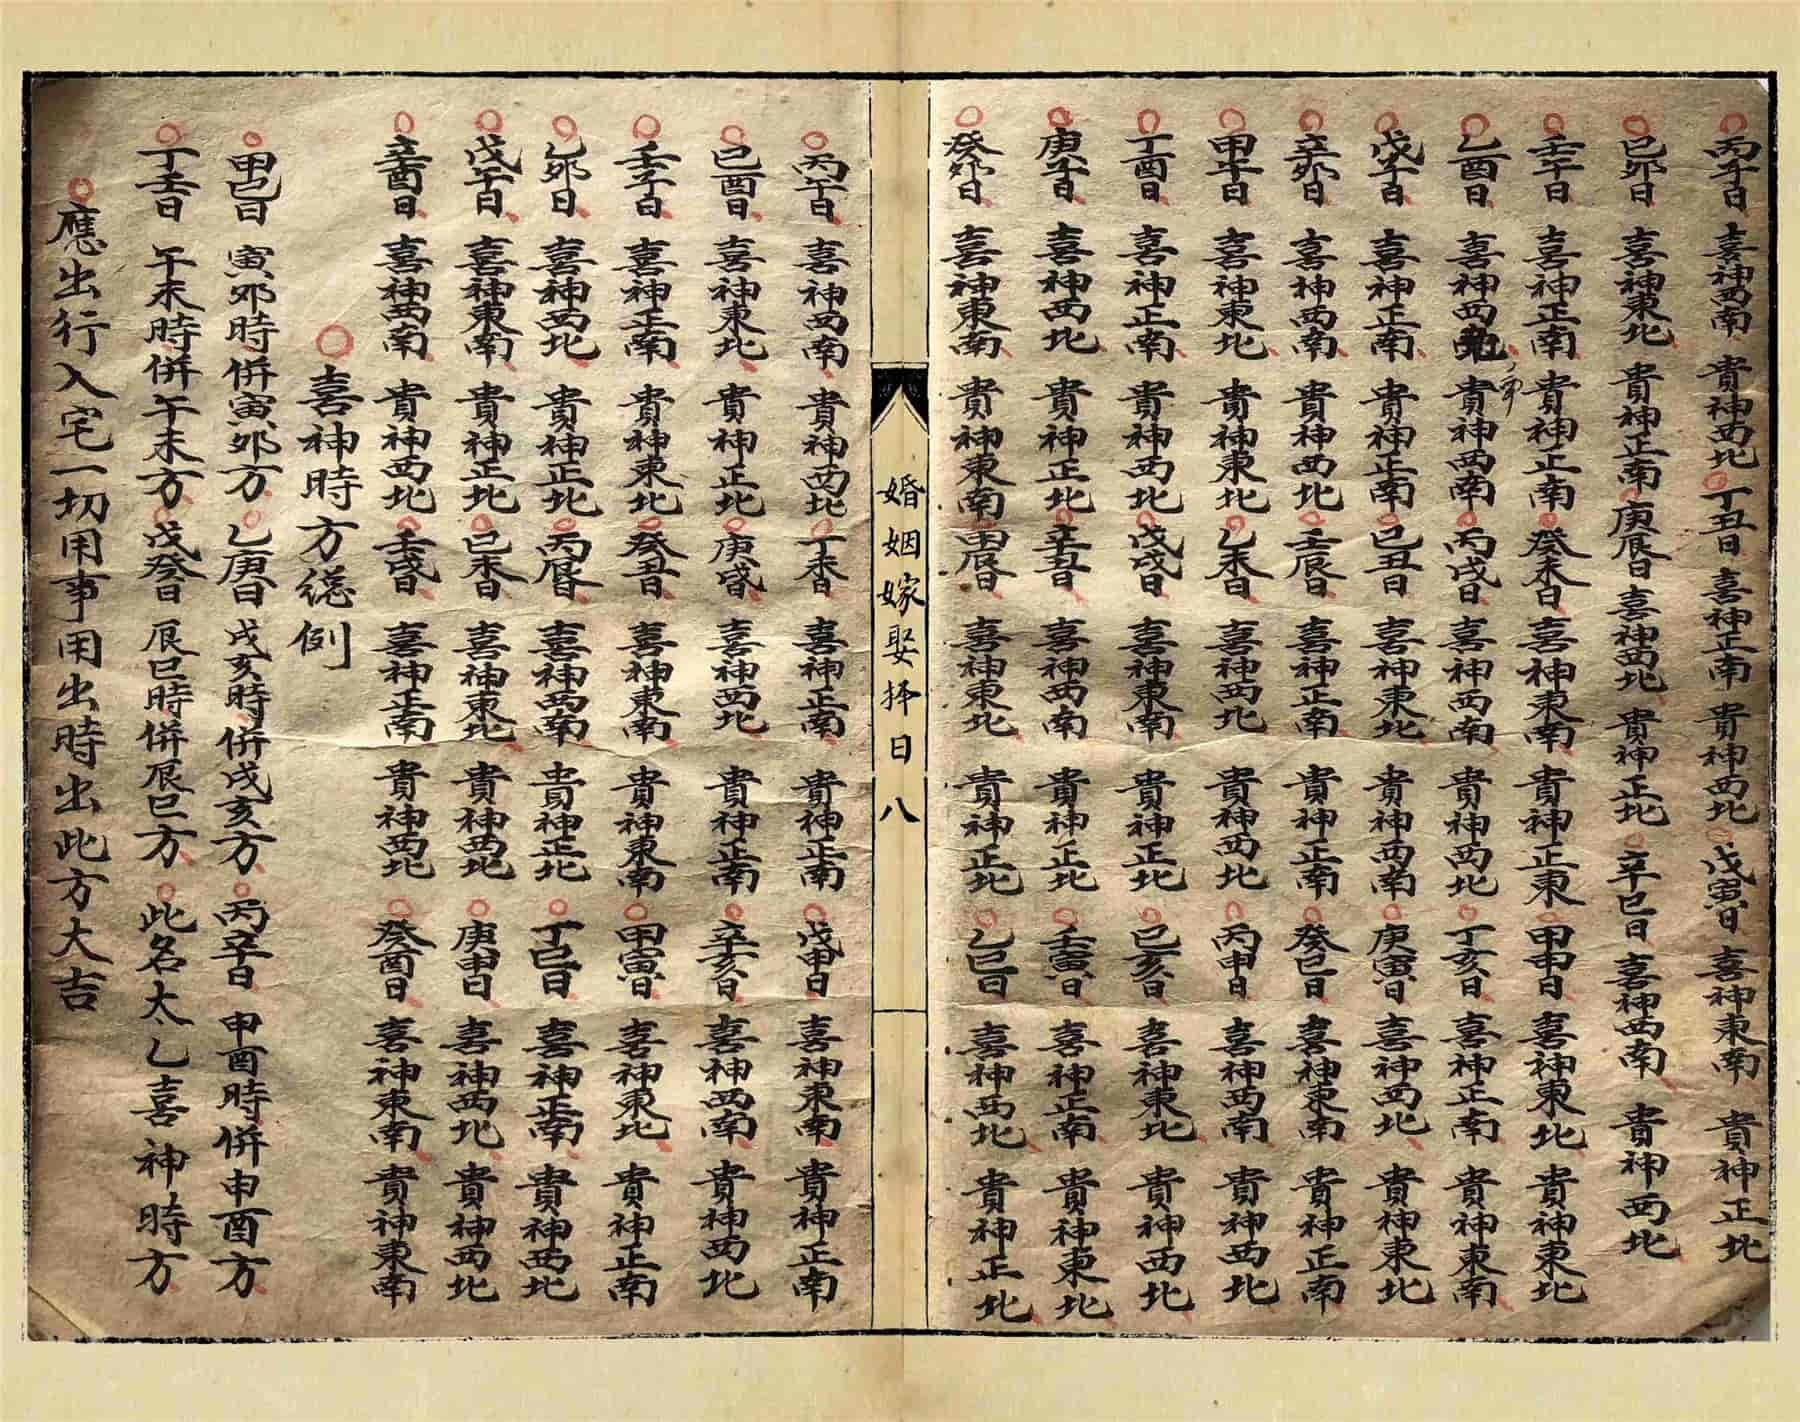 丙子日 喜神西南 貴神西北 丁丑日 喜神正南 貴神西北 戊寅日 喜神東南 貴神正北
己卯日 喜神東北 貴神正南 庚辰日 喜神西北 貴神正北 辛巳日 喜神西南 貴神西北
壬午日 喜神正南 貴神正南 癸未日 喜神東南 貴神正東 甲申日 喜神東北 貴神東北
乙酉日 喜神西 貴神西南 丙戌日 喜神西南 貴神西北 丁亥日 喜神正南 貴神東南
戊子日 喜神正南 貴神正南 己丑日 喜神東北 貴神西南 庚寅日 喜神西北 貴神東北
辛卯日 喜神西南 貴神西南 壬辰日 喜神正南 貴神正南 癸巳日 喜神東南 貴神正南
甲午日 喜神東北 貴神東北 乙未日 喜神西北 貴神西北 丙申日 喜神西南 貴神西北
丁酉日 喜神正南 貴神西北 戊戌日 喜神東南 貴神正北 己亥日 喜神東北 貴神西北
庚子日 喜神西北 貴神正北 辛丑日 喜神西南 貴神正北 壬寅日 喜神正南 貴神東北
癸卯日 喜神東南 貴神東南 甲辰日 喜神東北 貴神正北 乙巳日 喜神西北 貴神正北
婚姻嫁娶择日 八
丙午日 喜神西南 貴神西北 丁未日 喜神正南 貴神正南 戊申日 喜神東南 貴神正南
己酉日 喜神東北 貴神正北 庚戌日 喜神西北 貴神正南 辛亥日 喜神西南 貴神西北
壬子日 喜神正南 貴神東北 癸丑日 喜神東南 貴神東南 甲寅日 喜神東北 貴神正南
乙卯日 喜神西北 貴神正北 丙辰日 喜神西南 貴神正北 丁巳日 喜神正南 貴神西北
戊午日 喜神東南 貴神正北 己未日 喜神東北 貴神西北 庚申日 喜神西北 貴神西北
辛酉日 喜神西南 貴神西北 壬戌日 喜神正南 貴神西北 癸酉日 喜神東南 貴神東南
喜神時方總例
甲己日 寅卯時併寅卯方 乙庚日 戌亥時併戌亥方 丙辛日 申酉時併申酉方
丁壬日 午未時併午未方 戊癸日 辰巳時併辰巳方 此名太乙喜神時方
應出行入宅一切用事用出時出此方大吉